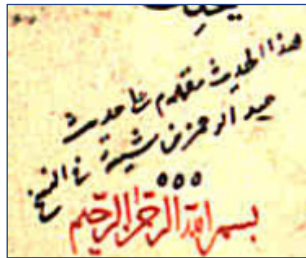 هذا الحديث مقدم على حديث
عبد الرحمن بن شيبة في النسخ
بسم الله الرحمن الرحيم